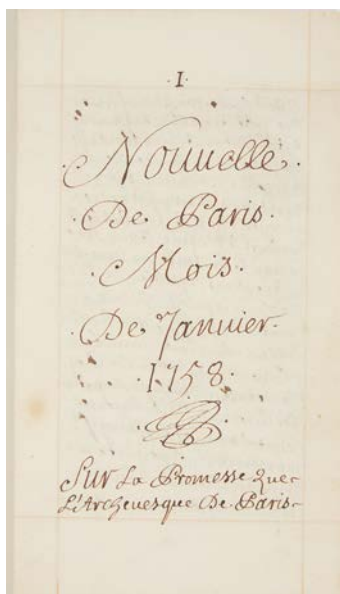 ·I·
·Nouuelle·
·De· Paris·
·Mois·
·De· Januier·
·1758·
Sur La Promesse Que-
L'Archeuesque De· Paris-